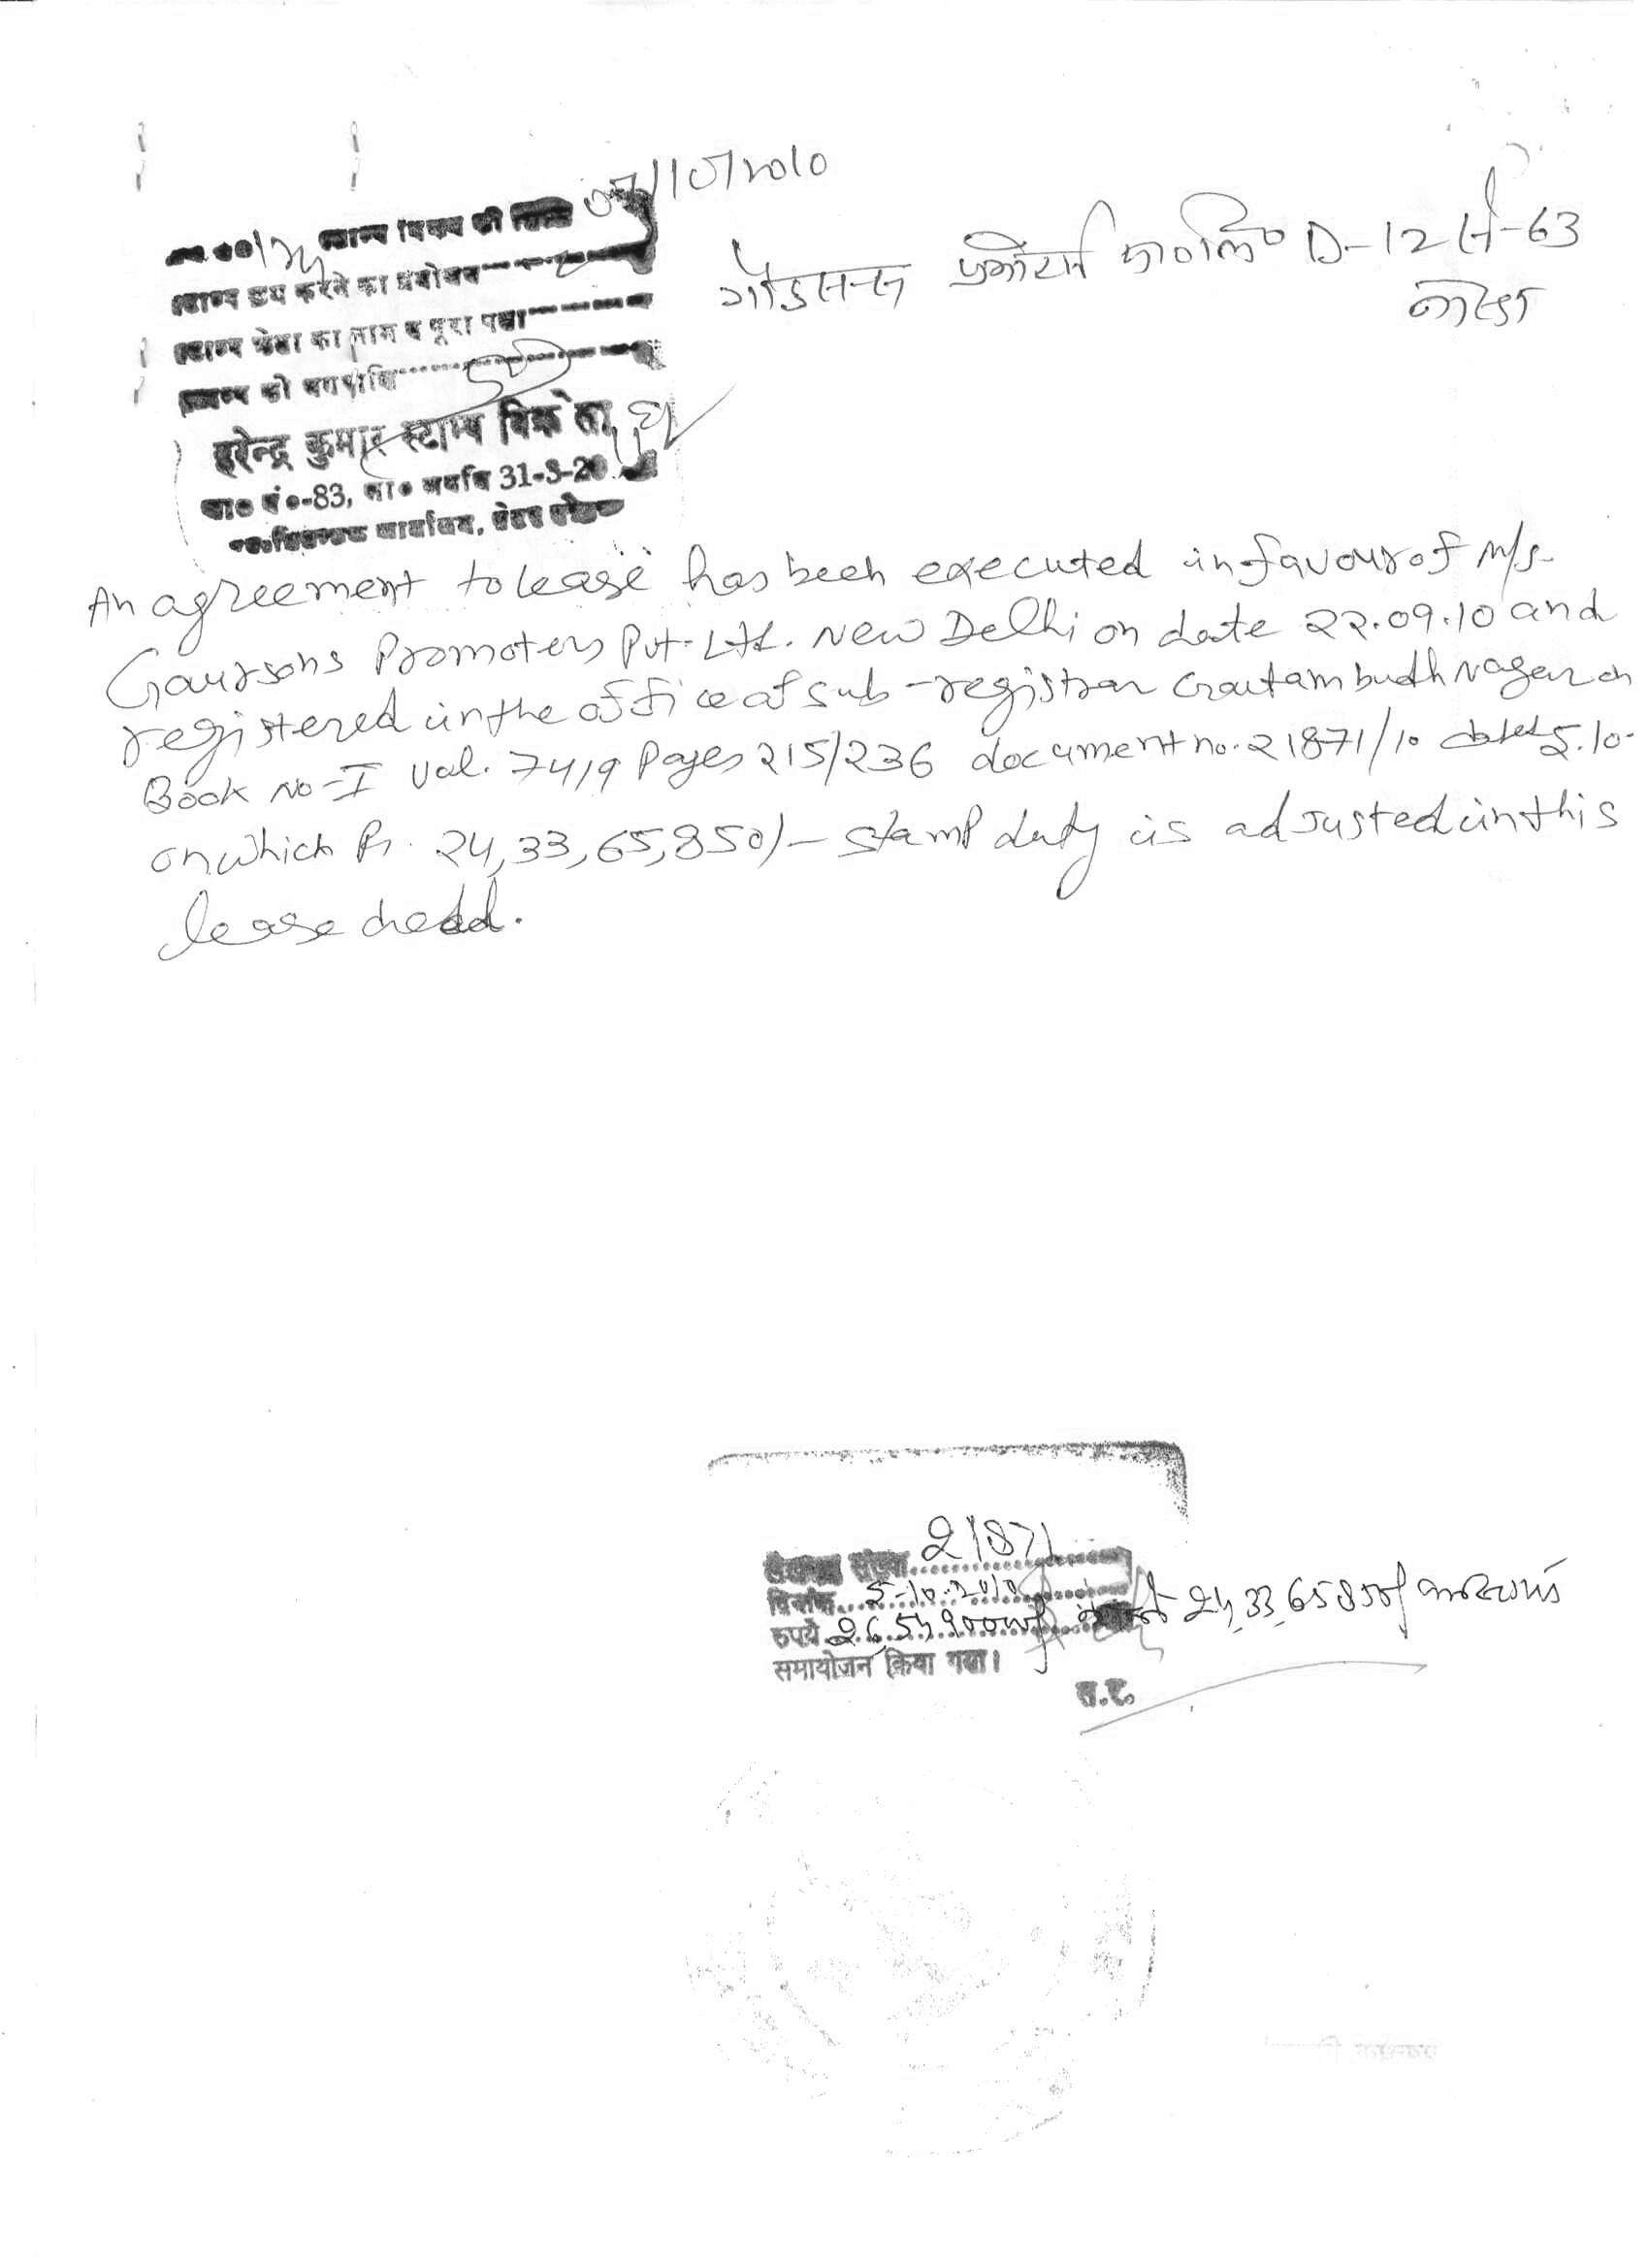 07/10/2010
स्टाम्प विक्रय की
स्टाम्प क्रय करने का प्रयोजन
स्टाम्प क्रेता का नाम व पूरा पता
गौड़सन्स प्रमोटर्स प्रा०लि० D-12 से-63
नोएडा
स्टाम्प की धनराशि
हरेन्द्र कुमार स्टाम्प विक्रेता
ला० सं०-83, ला० अवधि 31-3-20
An agreement to lease has been executed in favour of M/s.
Gaursons Promoters Pvt. Ltd. New Delhi on date 22.09.10 and
registered in the office of sub-registrar Gautam budh Nagar on
Book No-I Vol. 7419 Pages 215/236 document no. 21871/10 dated 5.10.
on which Rs. 24,33,65,850/- stamp duty is adjusted in this
lease deed.
लेखपत्र संख्या 21871
दिनांक 5-10-2010
रुपये 24,33,65850/
समायोजन किया गया।